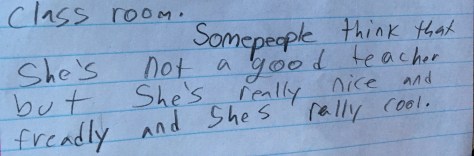 class room.
Somepeople think that
She's not a good teacher
but She's really nice and
freadly and She's rally cool.